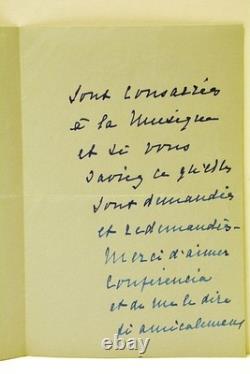 sont consacrées
à la musique
et si vous
saviez ce qu'elles
sont demandées
et redemandées -
Merci d'aimer
Conferencia
et de me le dire
si amicalement
ebay.com